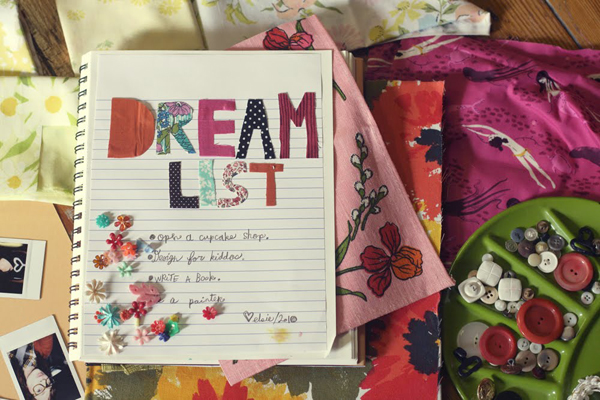 DREAM
LIST
• Open a cupcake shop.
• Design for kiddos.
• WRITE A Book.
a painter
♡ elsie/2010